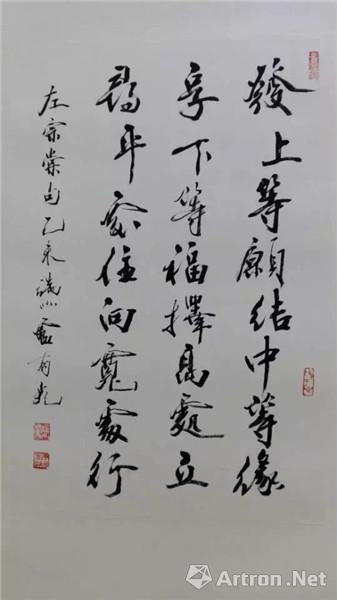 發上等願結中等緣
享下等福擇高處立
尋平處住向寬處行
左宗棠句乙未
Artron.Net